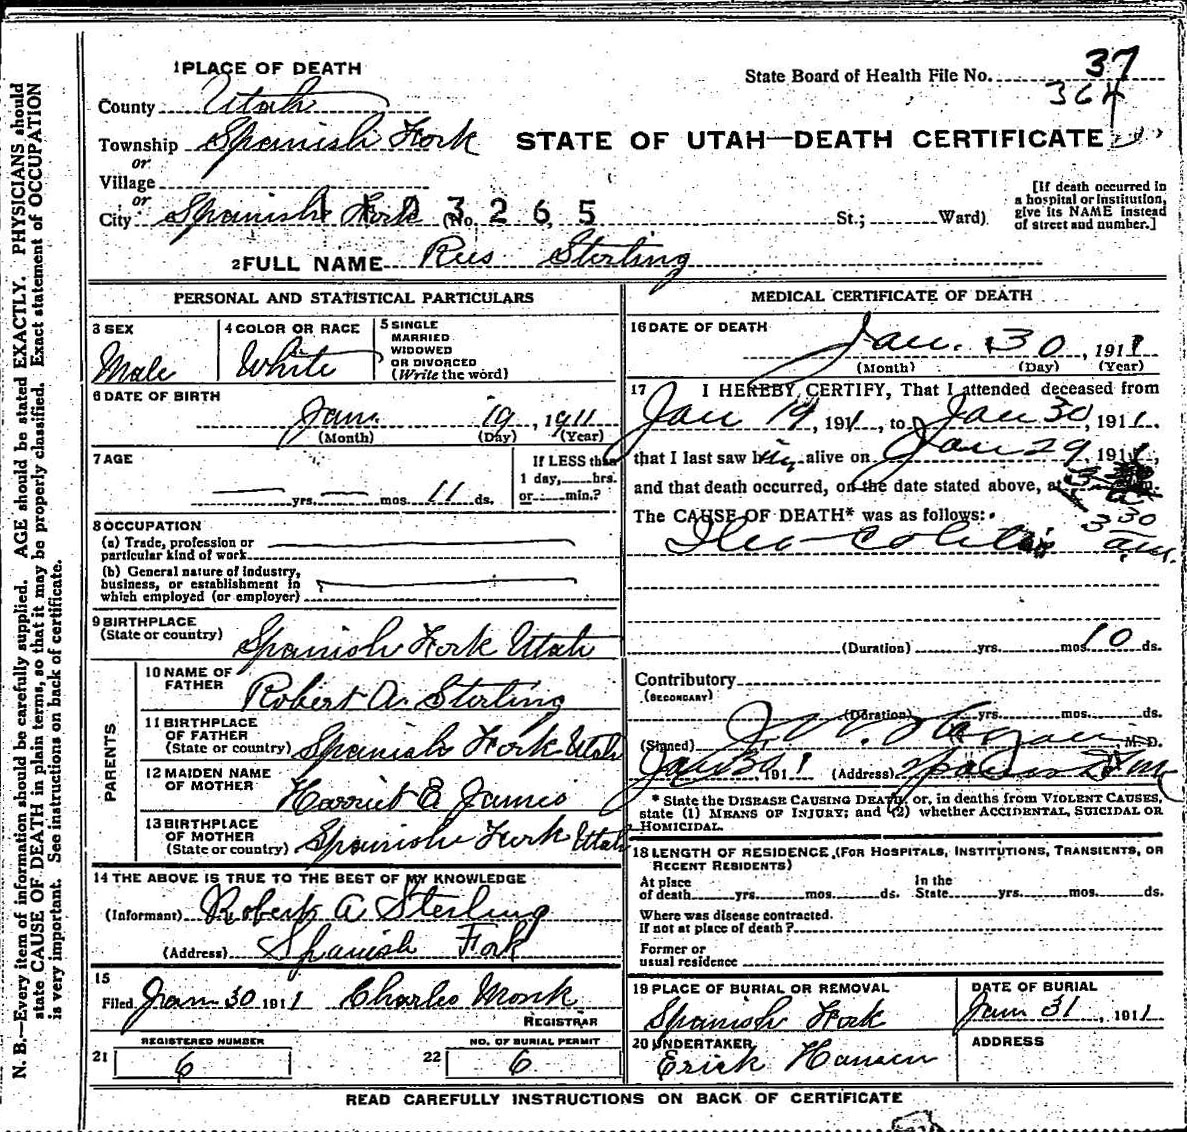 1 PLACE OF DEATH
State Board of Health File No. 37
364
County Utah
Township Spanish Fork
STATE OF UTAH—DEATH CERTIFICATE
or
Village
or
City Spanish Fork (No. 3265 St.; Ward)
[If death occurred in
a hospital or institution,
give its NAME instead
of street and number.]
2 FULL NAME Rees Sterling
PERSONAL AND STATISTICAL PARTICULARS
3 SEX
Male
4 COLOR OR RACE
White
5 SINGLE
MARRIED
WIDOWED
OR DIVORCED
(Write the word)
6 DATE OF BIRTH
Jan. 19, 1911
(Month) (Day) (Year)
7 AGE
yrs. mos. 11 ds.
If LESS than
1 day, hrs.
or min.?
8 OCCUPATION
(a) Trade, profession or
particular kind of work
(b) General nature of industry,
business, or establishment in
which employed (or employer)
9 BIRTHPLACE
(State or country)
Spanish Fork Utah
PARENTS
10 NAME OF
FATHER
Robert A. Sterling
11 BIRTHPLACE
OF FATHER
(State or country)
Spanish Fork Utah
12 MAIDEN NAME
OF MOTHER
Harriet E James
13 BIRTHPLACE
OF MOTHER
(State or country)
Spanish Fork Utah
14 THE ABOVE IS TRUE TO THE BEST OF MY KNOWLEDGE
(Informant) Robert A Sterling
(Address) Spanish Fork
15
Filed Jan 30 1911 Charles Monk
REGISTRAR
21 REGISTERED NUMBER
6
22 NO. OF BURIAL PERMIT
6
MEDICAL CERTIFICATE OF DEATH
16 DATE OF DEATH
Jan. 30, 1911
(Month) (Day) (Year)
17 I HEREBY CERTIFY, That I attended deceased from
Jan 19, 1911, to Jan 30, 1911
that I last saw him alive on Jan 29, 1911,
and that death occurred, on the date stated above, at m.
The CAUSE OF DEATH* was as follows:
3 30 a.m.
Ileo-colitis
(Duration) yrs. mos. 10 ds.
Contributory
(SECONDARY)
(Duration) yrs. mos. ds.
(Signed) J. M. D.
Jan 30 1911 (Address) Spanish Fork
* State the DISEASE CAUSING DEATH, or, in deaths from VIOLENT CAUSES,
state (1) MEANS OF INJURY; and (2) whether ACCIDENTAL, SUICIDAL OR
HOMICIDAL.
18 LENGTH OF RESIDENCE, (FOR HOSPITALS, INSTITUTIONS, TRANSIENTS, OR
RECENT RESIDENTS)
At place
of death yrs. mos. ds.
In the
State yrs. mos. ds.
Where was disease contracted.
If not at place of death?
Former or
usual residence
19 PLACE OF BURIAL OR REMOVAL
Spanish Fork
DATE OF BURIAL
Jan 31, 1911
20 UNDERTAKER
Erick Hansen
ADDRESS
READ CAREFULLY INSTRUCTIONS ON BACK OF CERTIFICATE
N. B.—Every item of information should be carefully supplied. AGE should be stated EXACTLY. PHYSICIANS should
state CAUSE OF DEATH in plain terms, so that it may be properly classified. Exact statement of OCCUPATION
is very important. See instructions on back of certificate.